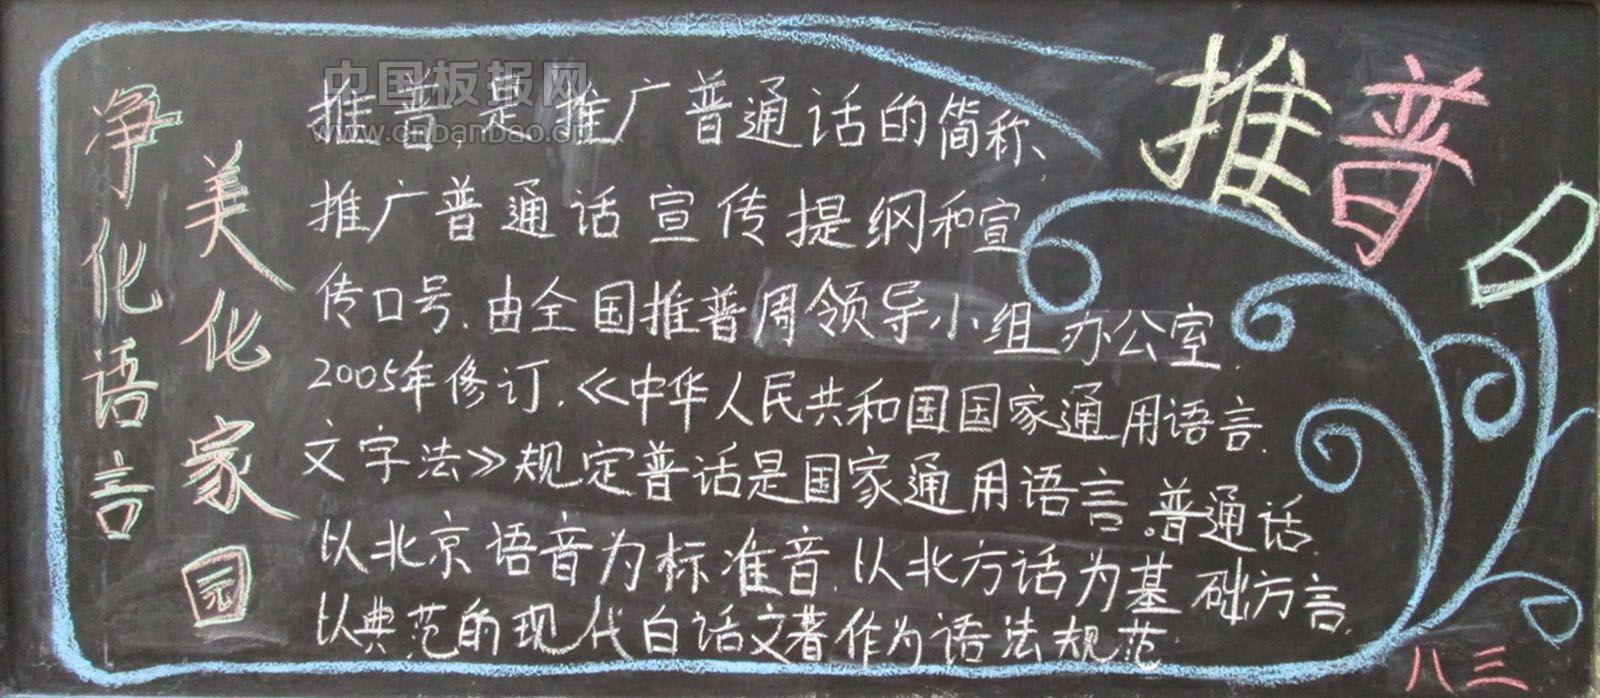 净化语言
美化家园
推普
中国板报网
www.cnbanbao.cn
推普,是推广普通话的简称、
推广普通话宣传提纲和宣
传口号.由全国推普周领导小组办公室.
2005年修订.《中华人民共和国国家通用语言.
文字法》规定普话是国家通用语言.普通话.
以北京语音为标准音.以北方话为基础方言.
以典范的现代白话文著作为语法规范.
八三